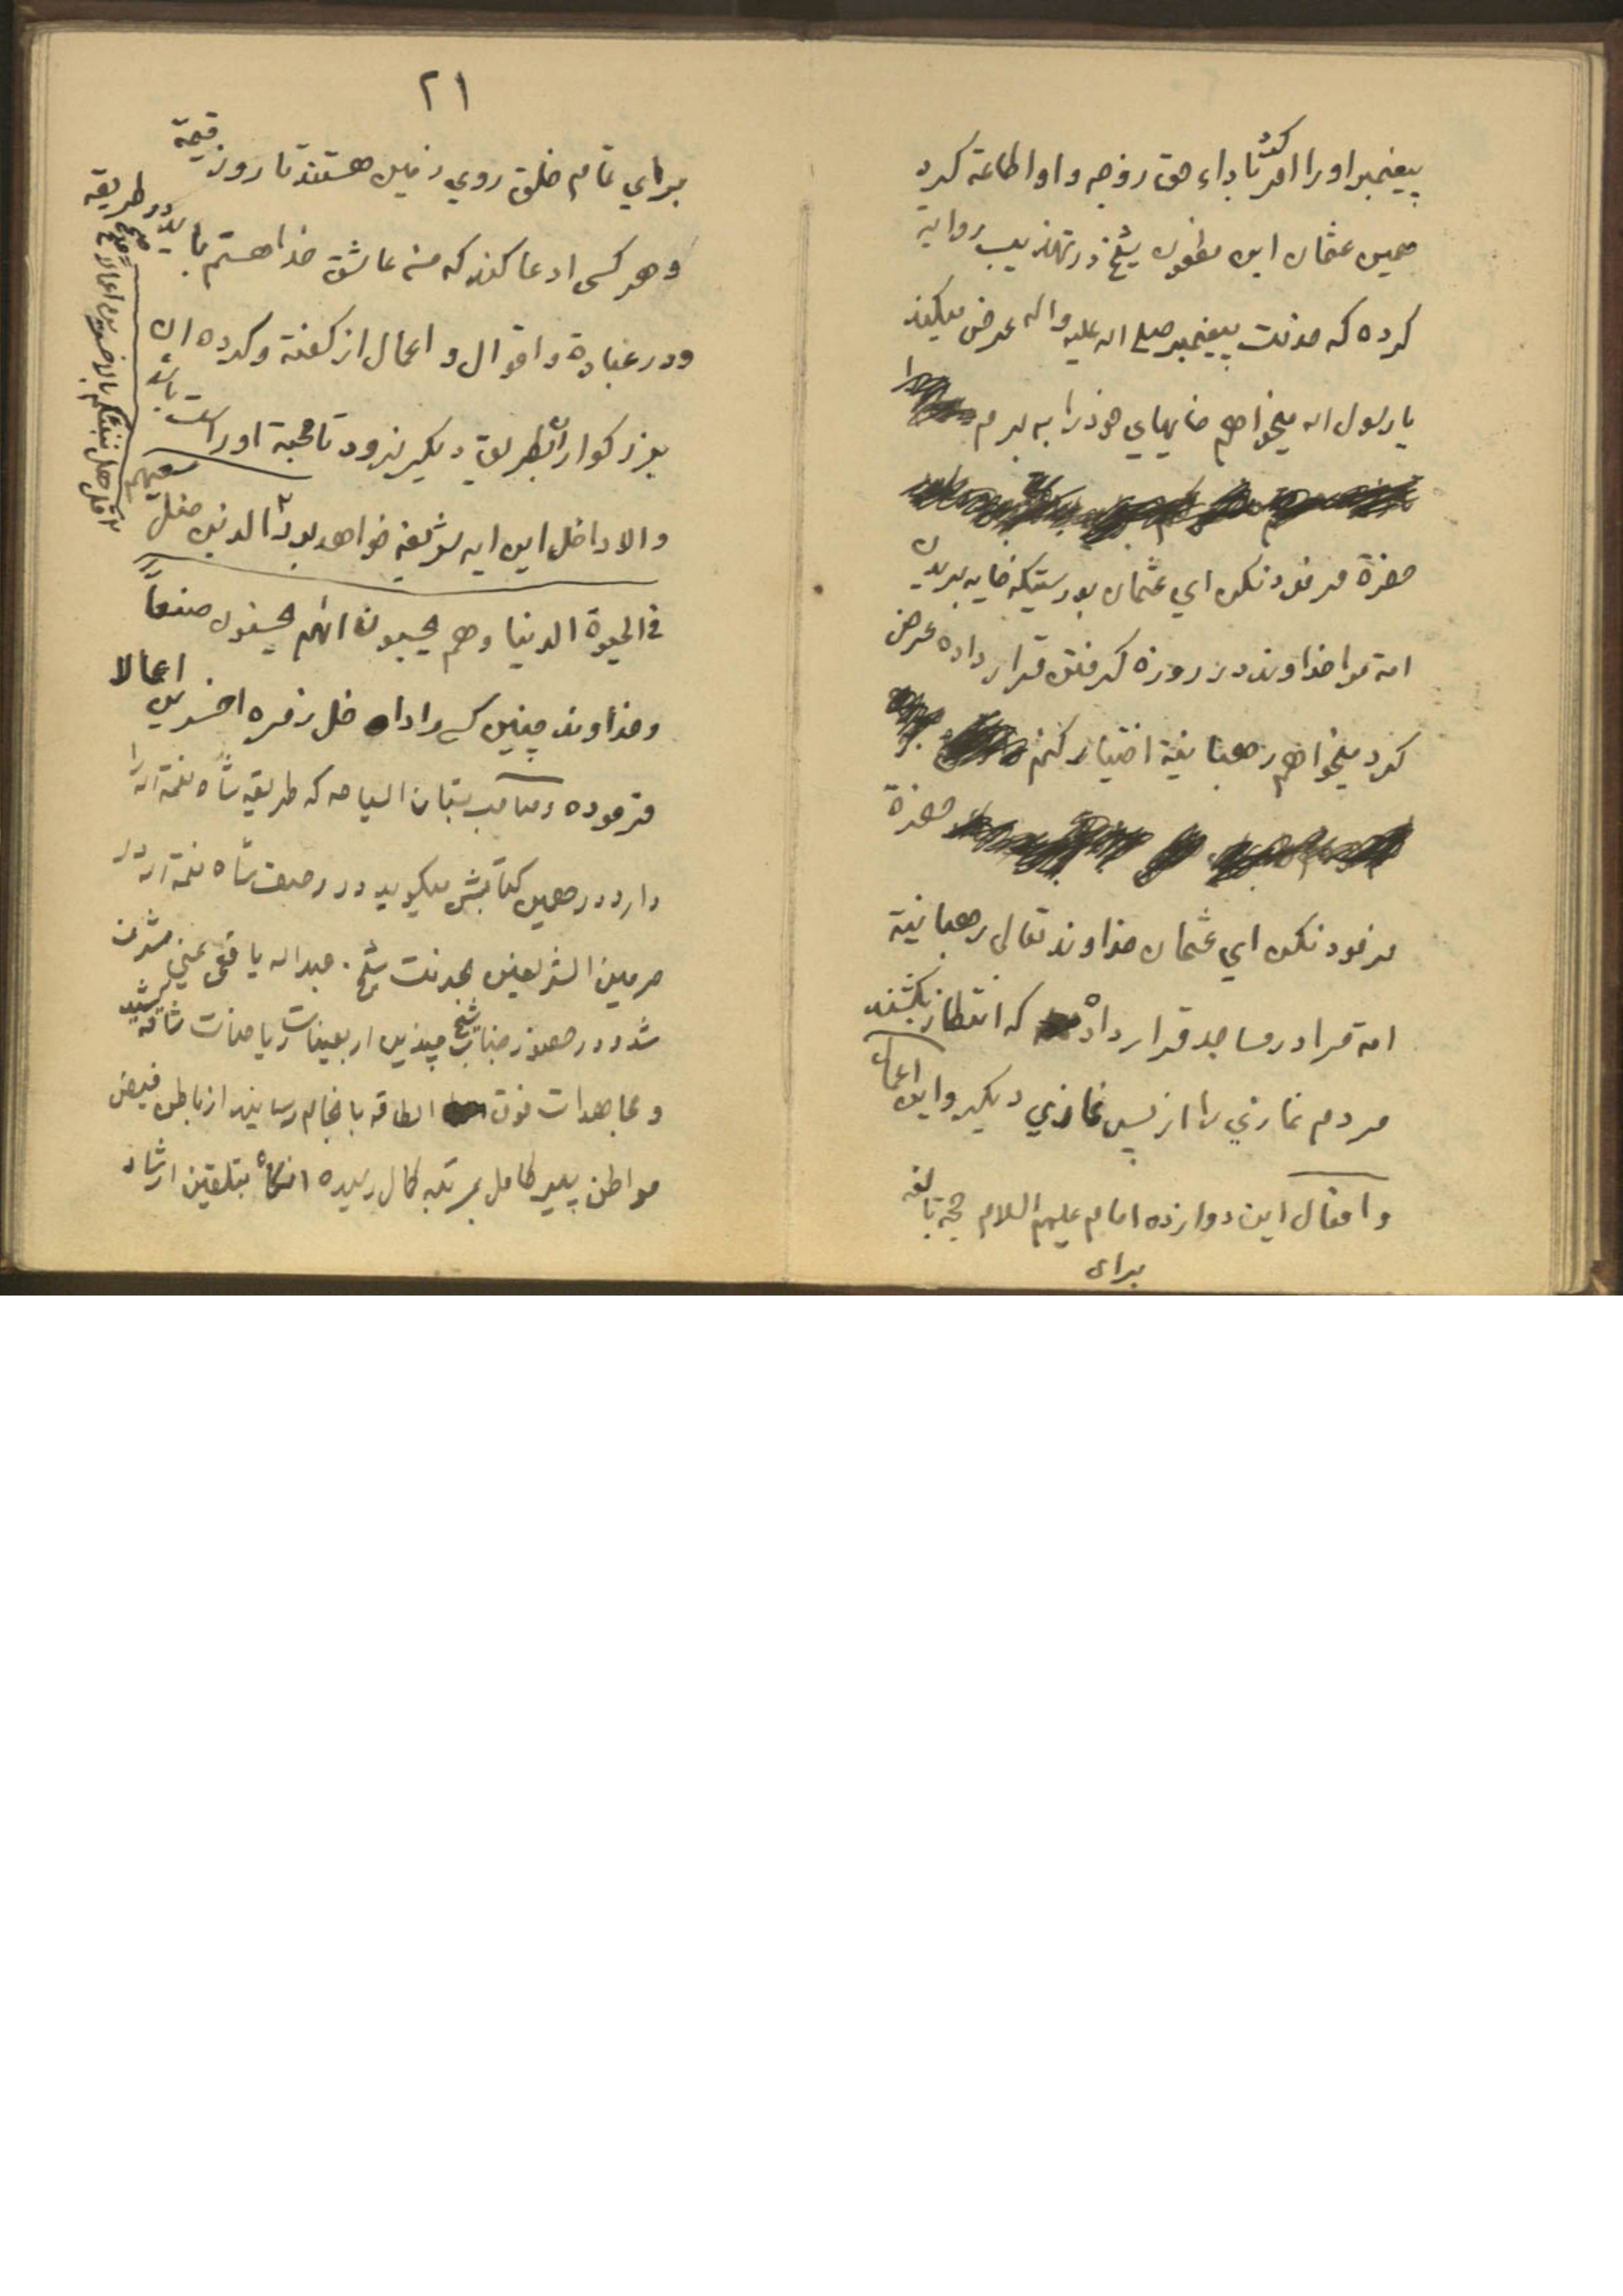 پیغمبر اورا امر کرد تا باداء حق زوجه و او اطاعة کرد
همین عثمان ابن مظعون شیخ در تهذیب روایة
کرده که خدمت پیغمبر صلی اله علیه واله عرض میکند
یا رسول اله میخواهم خایهای خودرا به برم
حضرة فرمود نکن ای عثمان بدرستیکه خایه بریدن
امة مرا خداوند در روزه گرفتن قرار داده عرض
کرد میخواهم رهبانیة اختیار کنم
حضرة
فرمود نکن ای عثمان خداوند تعالی رهبانیة
امة مرا در مساجد قرار داده که انتظار بکشند
مردم نمازي را از پس نمازي دیگر و این اعمال
و افعال این دوازده امام علیهم السلام حجة بالغه
برای
۲۱
براي تمام خلق روي زمین هستند تا روز قیمة
و هر کسی ادعا کند که من عاشق خدا هستم باید در طریقه
و در عبادة و اقوال و اعمال از گفته و کرده ان
بزرگواران بطریق دیگر نرود تا محبة او راست باشد
والا داخل این ایه شریفه خواهد بود الذین ضل سعیهم
في الحیوة الدنیا وهم یحسبون انهم یحسنون صنعاً
و خداوند چنین کسی را داخل زمره اخسرین اعمالا
فرموده و صاحب بستان السیاحه که طریقه شاه نعمة اله را
دارد در همین کتابش میگوید در وصف شاه نعمة اله در
حرمین الشریفین بخدمت شیخ عبداله یافعی یمنی مشرف
شد و در حضور جناب شیخ چندین اربعینات و ریاضات شاقه کشید
و مجاهدات فوق الطاقه بانجام رسانید از باطن فیض
مواطن پیر کامل بمرتبه کمال رسیده انگاه بتلقین ارشاد
قل هل ننبئکم بالاخسرین اعمالا